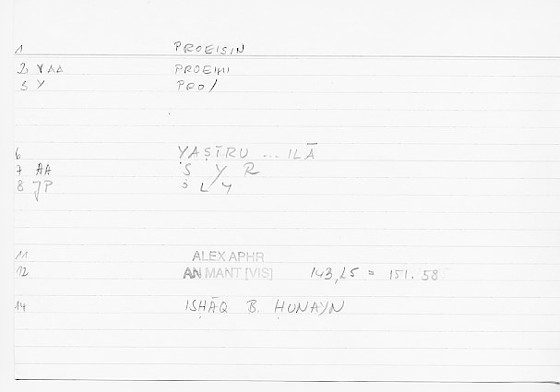 1 PROEISIN
2 YAA PROEIMI
3 Y PRO/
6 YAṢĪRU ... ILĀ
7 AA Ṣ Y R
8 JP Ỉ L Y
11 ALEX APHR
12 AN MANT [VIS] 143,25 = 151.58
14 ISḤĀQ B. ḤUNAYN